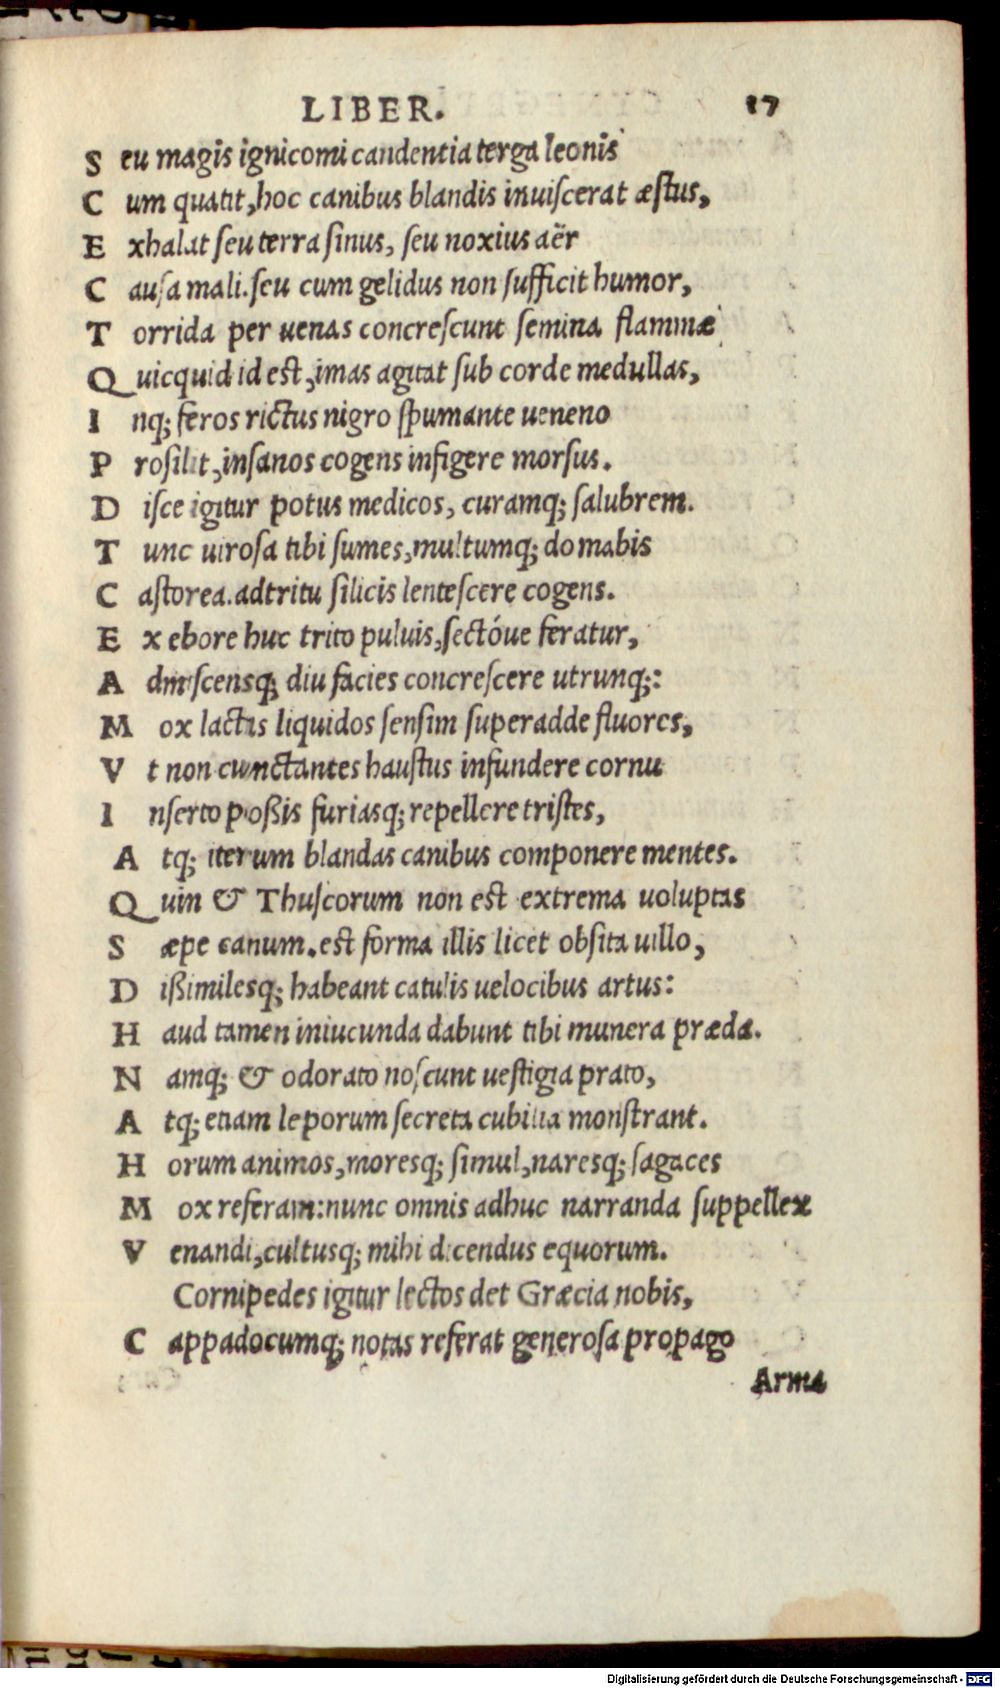 LIBER. 17
S eu magis ignicomi candentia terga leonis
C um quatit, hoc canibus blandis inuiſcerat æſtus,
E xhalat ſeu terra ſinus, ſeu noxius aër
C auſa mali. ſeu cum gelidus non ſufficit humor,
T orrida per uenas concreſcunt ſemina flammæ
Q uicquid id est, imas agitat ſub corde medullas,
I nq; feros rictus nigro ſpumante ueneno
P roſilit, inſanos cogens infigere morſus.
D iſce igitur potus medicos, curamq; ſalubrem.
T unc uiroſa tibi ſumes, multumq; domabis
C aſtorea. adtritu ſilicis lenteſcere cogens.
E x ebore huc trito puluis, ſectóue feratur,
A dmiſcensq; diu facies concreſcere utrunq;:
M ox lactis liquidos ſenſim ſuperadde fluores,
V t non cunctantes hauſtus infundere cornu
I nſerto poßis furiasq; repellere triſtes,
A tq; iterum blandas canibus componere mentes.
Q uin & Thuſcorum non est extrema uoluptas
S æpe canum. est forma illis licet obſita uillo,
D ißimilesq; habeant catulis uelocibus artus:
H aud tamen iniucunda dabunt tibi munera prædæ.
N amq; & odorato noſcunt ueſtigia prato,
A tq; etiam leporum ſecreta cubilia monſtrant.
H orum animos, moresq; ſimul, naresq; ſagaces
M ox referam: nunc omnis adhuc narranda ſuppellex
V enandi, cultusq; mihi dicendus equorum.
Cornipedes igitur lectos det Græcia nobis,
C appadocumq; notas referat generoſa propago
Arma
Digitalisierung gefördert durch die Deutsche Forschungsgemeinschaft - DFG